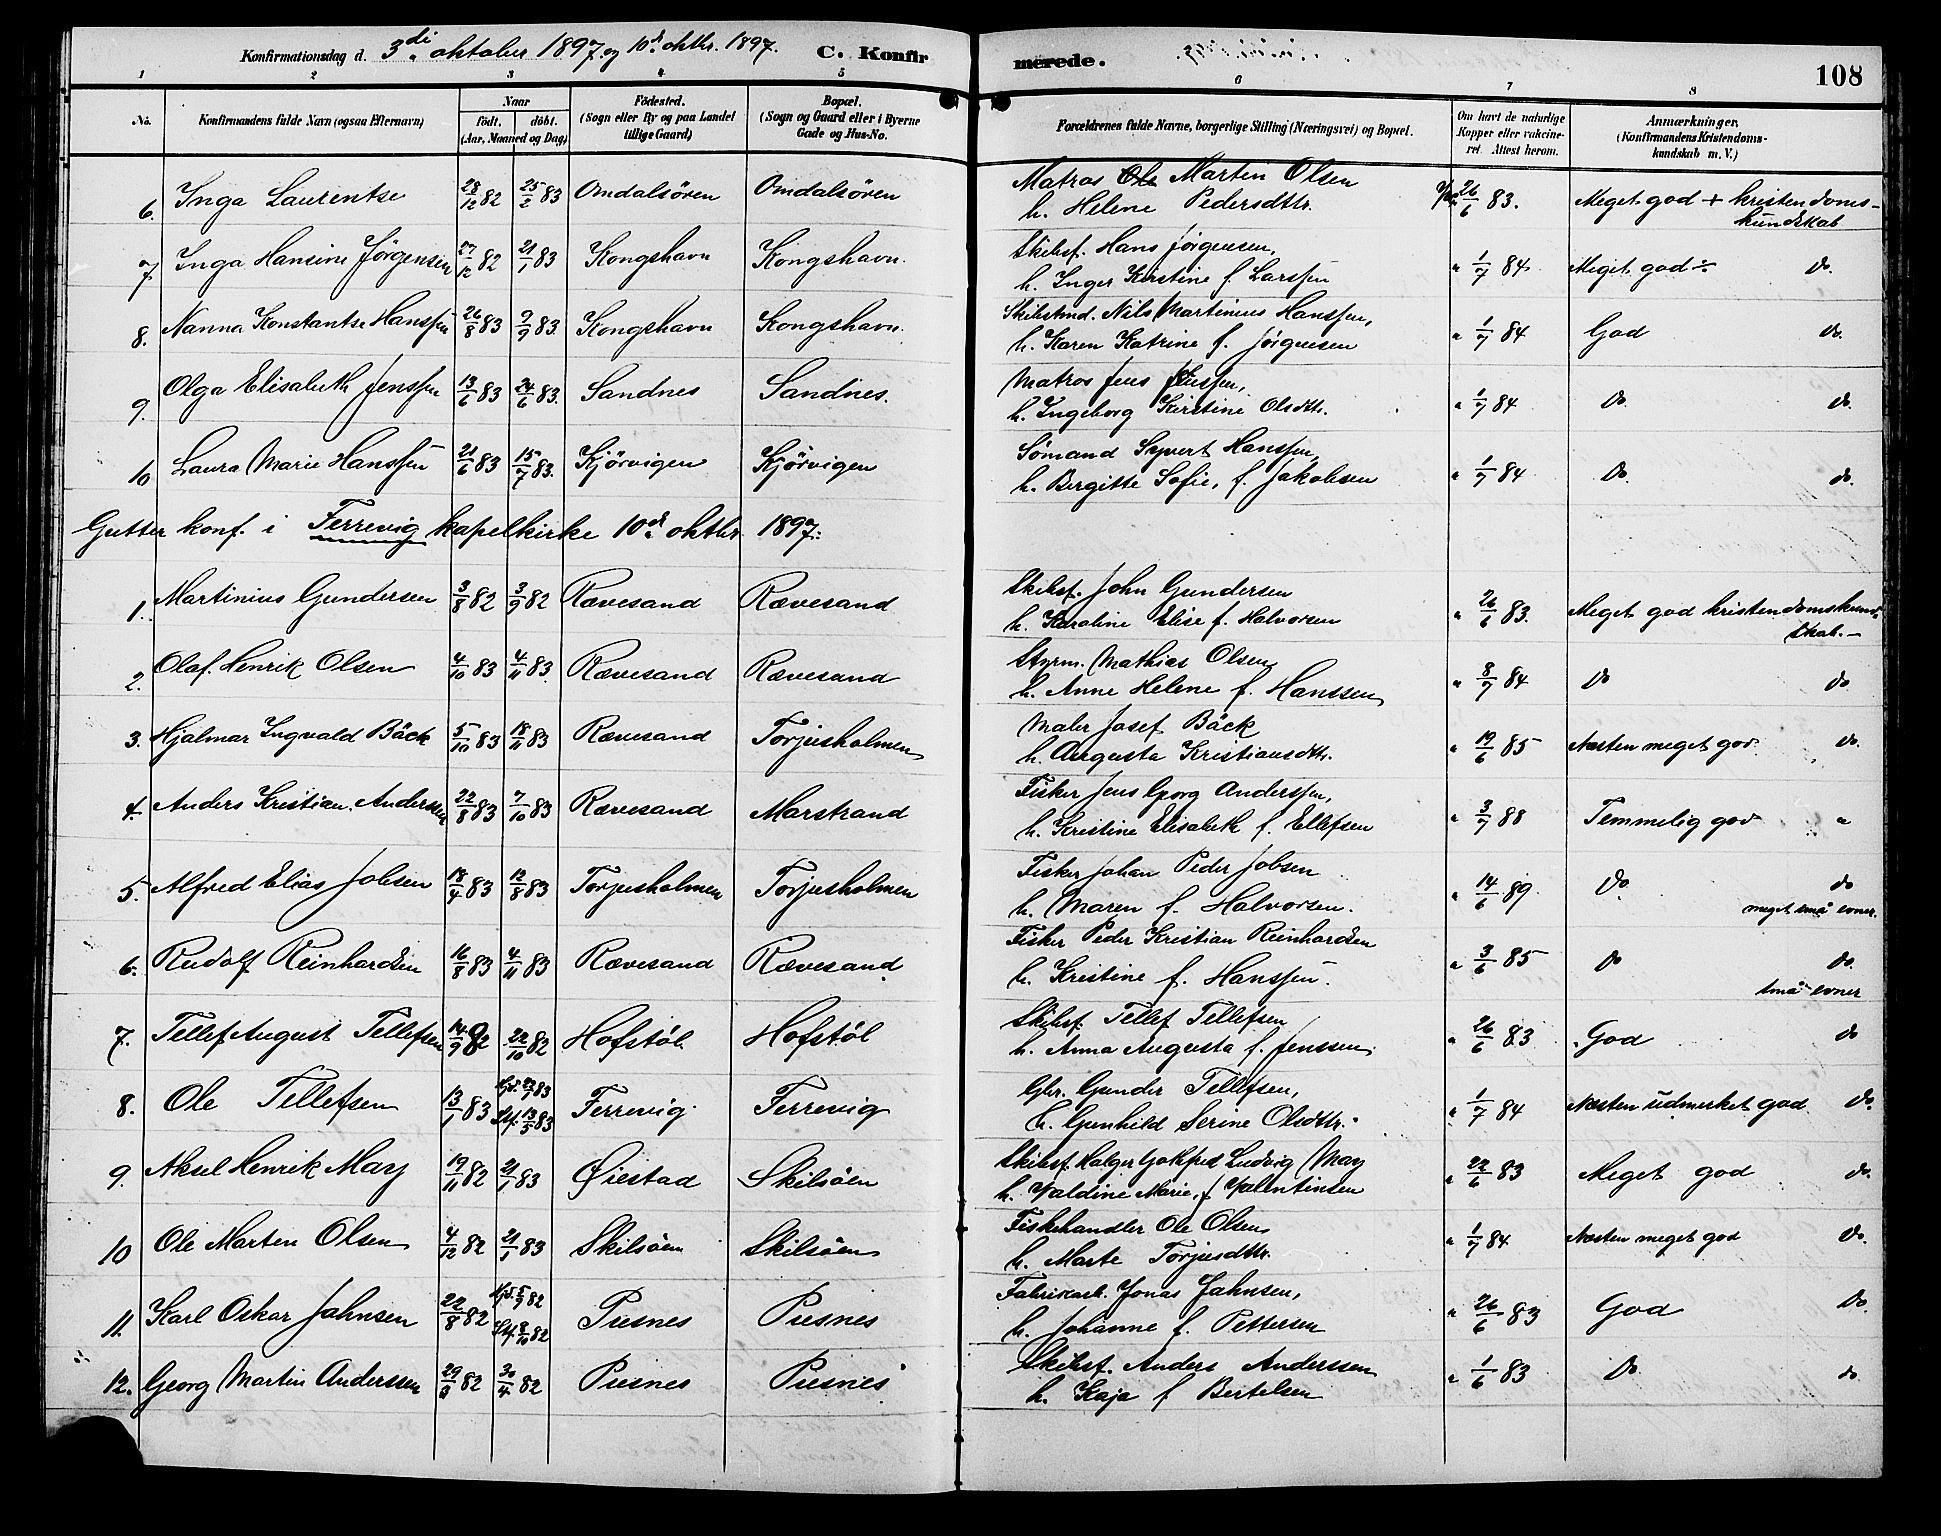 Konfirmationsdag d. 3di oktober 1897 og 10d oktbr. 1897. C. Konfirmerede. 108
1 2 3 4 5 6 7 8
No. Konfirmandens fulde Navn (ogsaa Efternavn) Naar födt. döbt. (Aar, Maaned og Dag) Födested. (Sogn eller By og paa Landet tillige Gaard) Bopæl. (Sogn og Gaard eller i Byerne Gade og Hus-No. Forældrenes fulde Navne, borgerlige Stilling (Næringsvei) og Bopæl. Om havt de naturlige Kopper eller vakcineret. Attest herom. Anmærkninger. (Konfirmandens Kristendomskundskab m. V.)
6. Inga Laurentse 28/12 82 25/2 83 Omdalsören Omdalsören Matros Ole Martin Olsen 26/6 83. Meget god + kristendoms-
h. Helene Pedersdttr. kundskab
7. Inga Hansine Jørgensen 27/12 82 21/1 83 Kongshavn Kongshavn. Skibsf. Hans Jørgensen, " 1/7 84. Meget god ÷ do.
h. Inger Kirstine f. Larssen
8. Nanna Konstantse Hanssen 26/8 83 9/9 83. Kongshavn Kongshavn. Skibstmd. Nils Martinius Hanssen, " 1/7 84 God do.
h. Karen Katrine f. Jörgensen
9. Olga Elisabeth Jenssen 13/6 83 24/6 83. Sandnes Sandnes. Matros Jens Jenssen, " 1/7 84 Do. do.
h. Ingeborg Kirstine Olsdttr.
10 Laura Marie Hanssen 21/6 83 15/7 83. Kjörvigen Kjörvigen Sømand Syvert Hanssen, " 1/7 84 Do. do.
h. Bergitte Sofie, f. Jakobsen
Gutter konf. i Færevig kapelkirke 10de oktbr. 1897:
1. Martinius Gundersen 3/8 82 3/9 82 Rævesand Rævesand Skibsf. John Gundersen " 26/6 83. Meget god kristendomskund-
h. Karoline Elise f. Halvorsen skab.-
2. Olaf Henrik Olsen 4/10 83 4/11 83. Rævesand Rævesand Styrm. Mathias Olsen " 8/7 84 Do do
h. Anne Helene f. Hanssen
3. Hjalmar Ingvald Bäck 5/10 83 18/11 83 Rævesand Torjusholmen Maler Josef Bäck " 19/6 85 Næsten meget god. do.
h. Augusta Kristiansdttr.
4. Anders Kristian Anderssen 22/8 83 7/10 83 Rævesand Marstrand Fisker Jens Georg Anderssen, " 3/7 88 Temmelig god "
h. Kristine Elisabeth f. Ellefsen
5. Alfred Elias Jobsen 18/4 83 12/8 83 Torjusholmen Torjusholmen Fisker Johan Peder Jobsen " 14/6 89 Do. do
h. Maren f. Halvorsen. meget små evner.
6. Rudolf Reinhardsen 16/8 83 4/11 83 Rævesand Rævesand Fisker Peder Kristian Reinhardsen " 3/6 85 Do do.
h. Kristine f. Hanssen. små evner
7. Tellef August Tellefsen 14/9 82 22/10 82 Hofstöl Hofstöl Skibsf. Tellef Tellefsen " 26/6 83 God do
h. Anna Augusta f. Jenssen.
8. Ole Tellefsen 13/1 83 Hjd. 83 Stf. 13/5 83 Færevig. Færevig Gbr. Gunder Tellefsen, " 1/7 84 Næsten udmerket god do.
h. Gunhild Serine Olsdttr.
9. Aksel Henrik May 19/11 82 21/1 83 Øiestad Skilsöen Skibsf. Holger Gotfred Ludvig May " 22/6 83 Meget god do.
h. Valdine Marie, f. Valentinsen
10 Ole Marten Olsen 4/12 82 21/1 83 Skilsöen Skilsöen Fiskehandler Ole Olsen " 1/7 84. Næsten meget god Do.
h. Marte Torjusdttr.
11. Karl Oskar Jahnsen 22/8 82 Hjd. 5/9 82 Stf. 8/10 82 Pusnes Pusnes Fabrikarb. Jonas Jahnsen, " 26/6 83 God Do.
h. Johanne f. Pettersen
12. Georg Martin Anderssen 29/3 82 30/4 82 Pusnes Pusnes Skibsf. Anders Anderssen " 1/6 83 Do do
h. Kaja f. Bertelsen